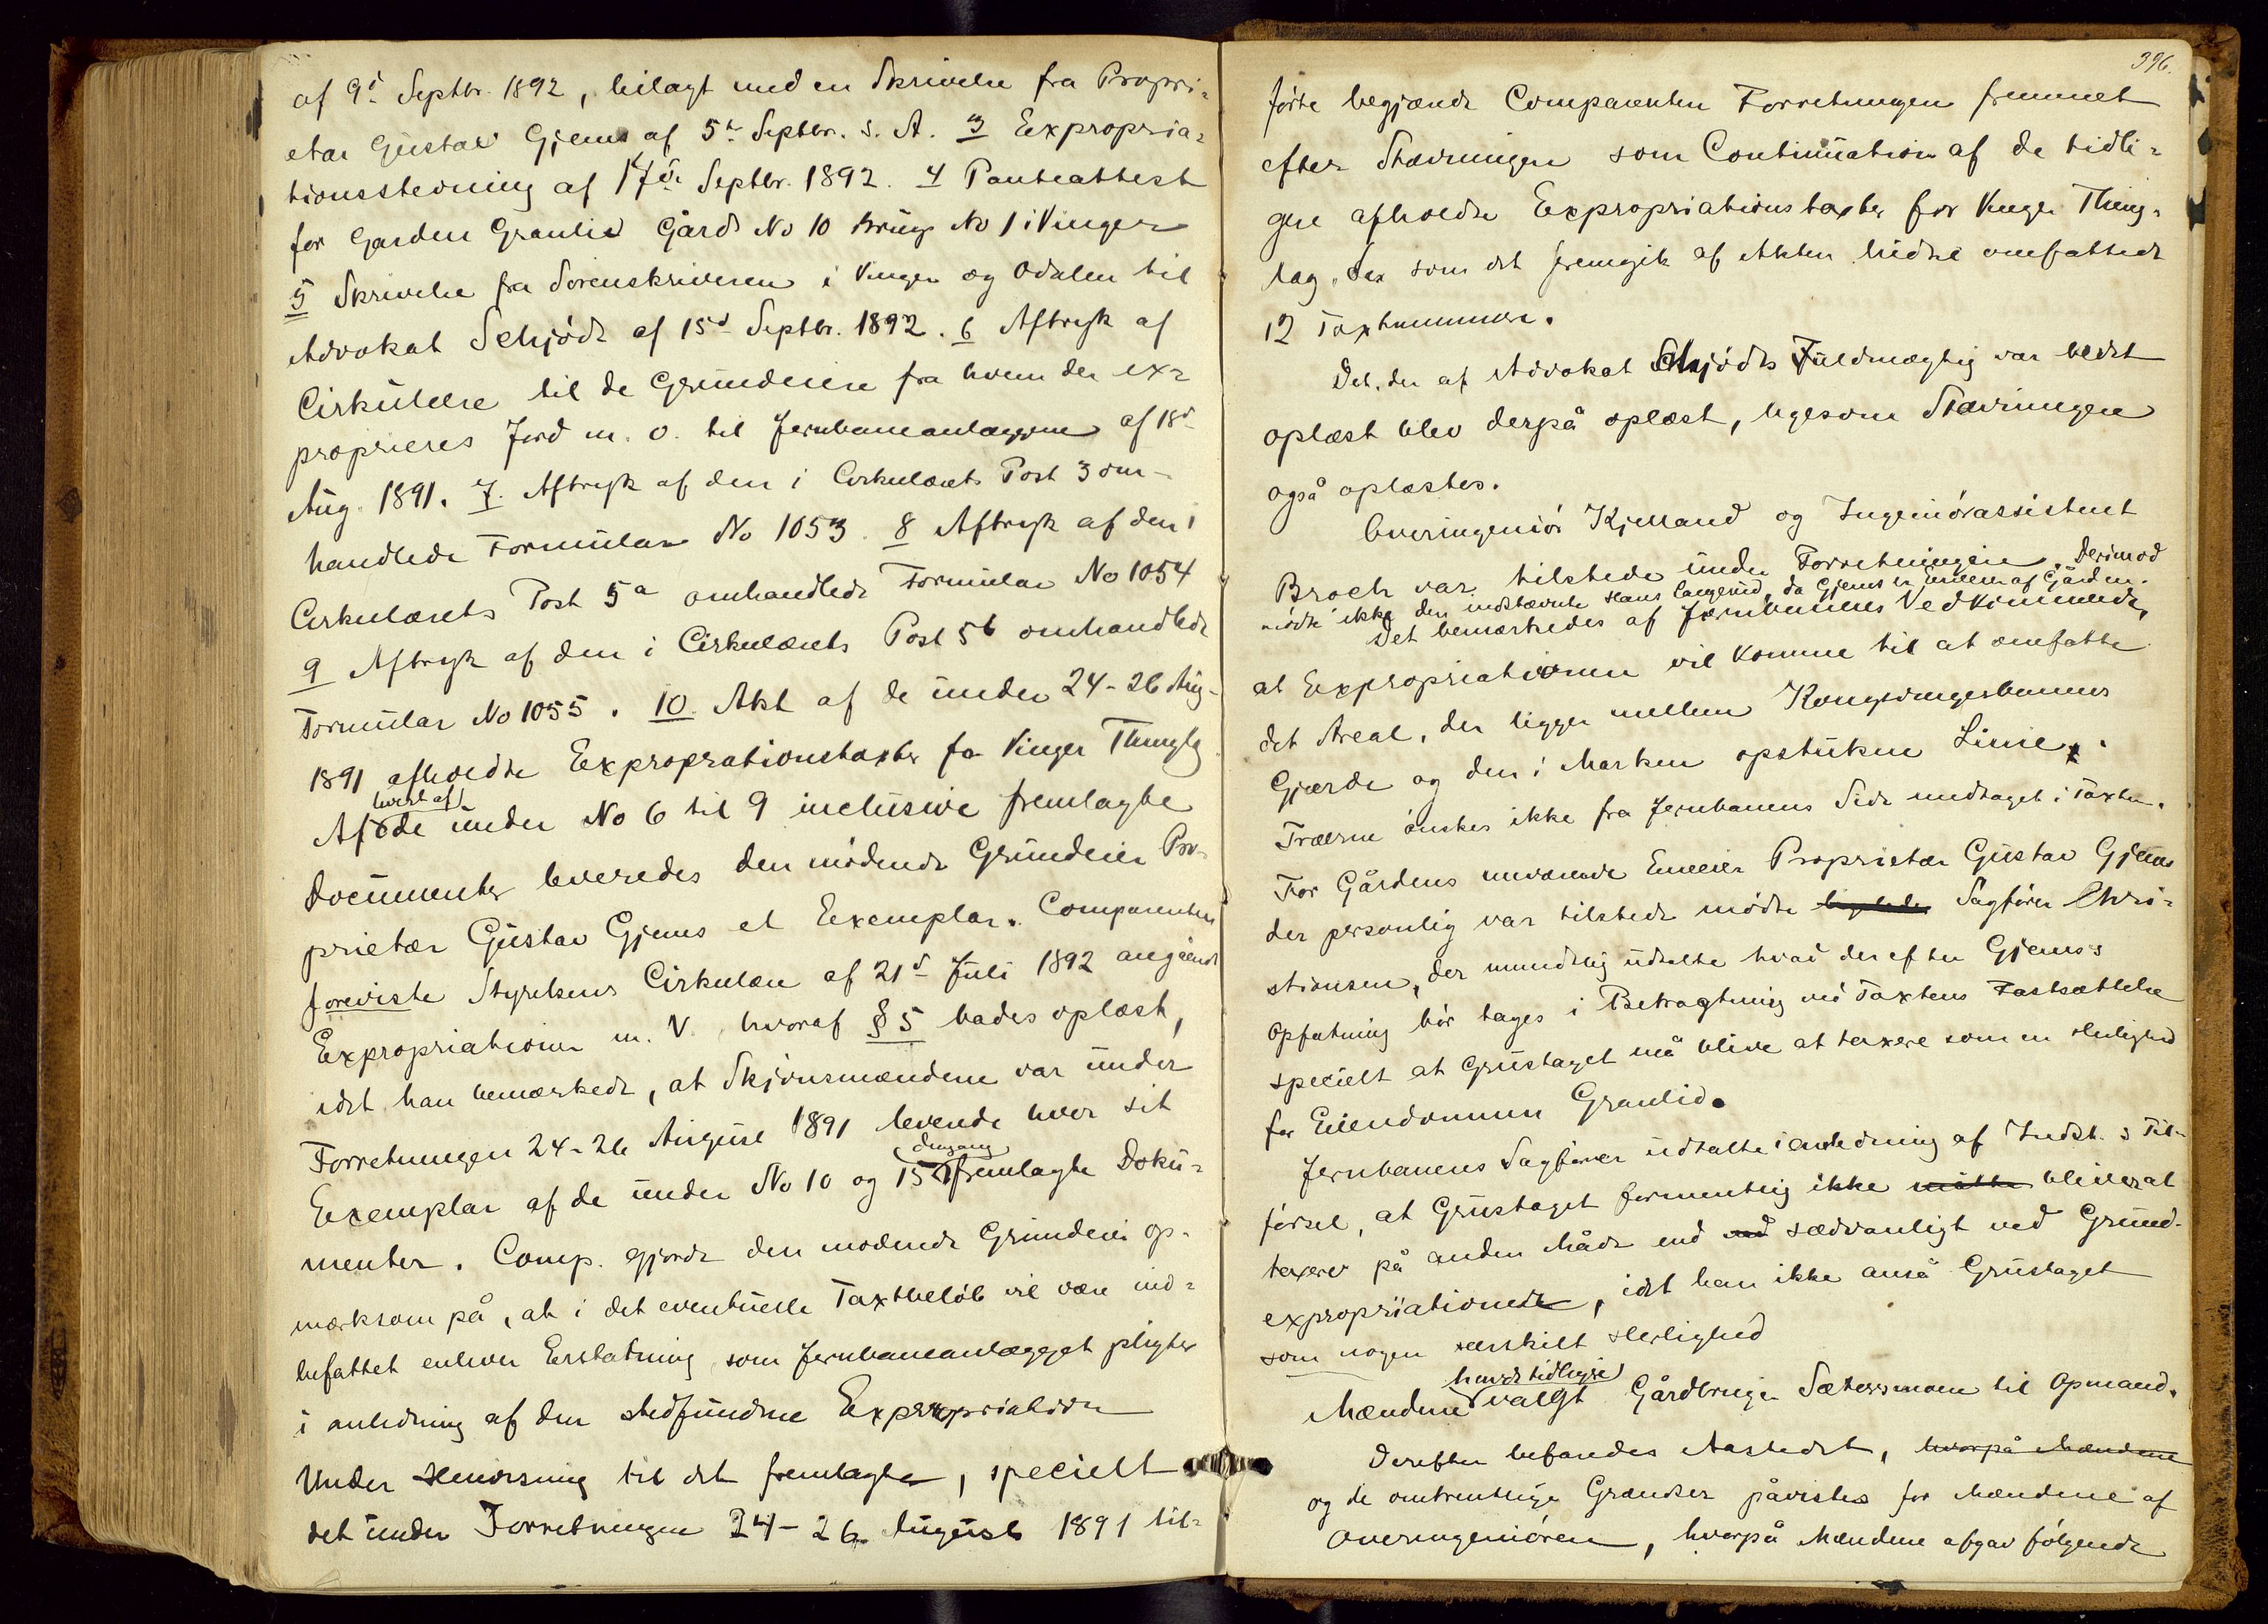 af 9d Septbr. 1892, bilagt med en Skrivelse fra Propri-
etær Gustav Gjems af 5te Septbr. s. A. 3 Expropria-
tionsstevning af 17de Septbr. 1892. 4 Panteattest
for Garden Granlid Gård No 10 Brug No 1 i Vinger
5 Skrivelse fra Sorenskriveren i Vinger og Odalen til
Advokat Schjødt af 15d Septbr. 1892. 6 Aftryk af
Cirkulære til de Grundeiere fra hvem der ex-
proprieres Jord m. v. til Jernbaneanlæggene af 18d
Aug. 1891. 7. Aftryk af den i Cirkulærets Post 3 om-
handlede Formular No 1053. 8 Aftryk af den i
Cirkulærets Post 5a omhandlede Formular No 1054
9 Aftryk af den i Cirkulærets Post 5b omhandlede
Formular No 1055. 10 Akt af de under 24-26 Aug.
1891 afholdte Expropriationstaxter for Vinger Thinglag.
hvert af
Af de under No 6 til 9 inclusive fremlagte
Documenter leveredes den mødende Grundeier Pro-
prietær Gustav Gjems et Exemplar. Comparenten
foreviste Styrelsens Cirkulære af 21d Juli 1892 angående
Expropriationer m. V. hvoraf § 5 bades oplæst,
idet han bemærkede, at Skjønsmændene var under
Forretningen 24-26 August 1891 leverede hver sit
dengang
Exemplar af de under No 10 og 15 fremlagte Doku-
menter. Comp. gjorde den mødende Grundeier op-
mærksom på, at i det eventuelle Taxtbeløb vil være ind-
befattet enhver Erstatning som Jernbaneanlægget pligter
i anledning af den stedfundne Expropriation
Under Henvisning til det fremlagte, specielt
det under Forretningen 24-26 August 1891 til-
396.
førte begjærede Comparenten Forretningen fremmet
efter Stævningen som Continuation af de tidli-
gere afholdte Expropriationstaxter for Vinger Thing-
lag, der som det fremgik af Akten hidtil omfattede
12 Taxtnummere.
Det, der af Advokat Schjødts Fuldmægtig var bedet
oplæst blev derpå oplæst, ligesom Stævningen
også oplæstes.
Overingeniør Kjelland og Ingeniørassistent
Broch var tilstede under Forretningen. Derimod
mødte ikke den indstævnte Hans Langerud, da Gjems er Eneeier af Gården.
Det bemærkedes af Jernbanens Vedkommende,
at Expropriationen vil komme til at omfatte
det Areal, der ligger mellem Kongsvingerbanens
Gjærde og den i Marken opstukne Linie.
Træerne ønskes ikke fra Jernbanens Side medtaget i Taxten.
For Gårdens nuværende Eneeier Proprietær Gustav Gjems
der personlig var tilstede mødte Sagfører Chri-
stiansen, der mundtlig udtalte hvad der efter Gjems's
Opfatning bør tages i Betragtning ved Taxtens Fastsættelse
specielt at Grustaget må blive at taxere som en Herlighed
for Eiendommen Granlid.
Jernbanens Sagfører udtalte i anledning af Indst.s Til-
førsel, at Grustaget formentlig ikke måtte bliver at
taxere på anden Måde end ved sædvanligt ved Grund-
expropriationer, idet han ikke anså Grustaget
som nogen særskilt Herlighed
havde tidligere
Mændene valgt Gårdbruger Sætersmoen til Opmand.
Derefter befaredes Aastedet, hvorpå Mændene
og de omtrentlige Grændser påvistes for Mændene af
Overingeniøren, hvorpå Mændene afgav følgende